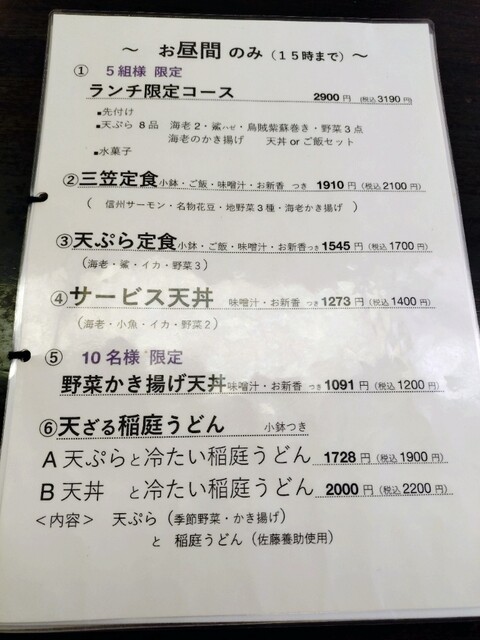 ～ お昼間 のみ（１５時まで）～
① ５組様 限定
ランチ限定コース 2900 円 (税込 3190 円)
■先付け
■天ぷら ８品 海老２・鯊ハゼ・烏賊紫蘇巻き・野菜３点
海老のかき揚げ 天丼 or ご飯セット
■水菓子
②三笠定食 小鉢・ご飯・味噌汁・お新香 つき 1910 円（税込 2100 円）
（ 信州サーモン・名物花豆・地野菜３種・海老かき揚げ ）
③天ぷら定食 小鉢・ご飯・味噌汁・お新香つき 1545 円（税込 1700 円）
（海老・鯊・イカ・野菜３）
④サービス天丼 味噌汁・お新香 つき 1273 円（税込 1400 円）
（海老・小魚・イカ・野菜２）
⑤ 10 名様 限定
野菜かき揚げ天丼 味噌汁・お新香 つき 1091 円（税込 1200 円）
⑥天ざる稲庭うどん 小鉢つき
A 天ぷらと冷たい稲庭うどん 1728 円（税込 1900 円）
B 天丼 と冷たい稲庭うどん 2000 円（税込 2200 円）
＜内容＞ 天ぷら（季節野菜・かき揚げ）
と 稲庭うどん（佐藤養助使用）